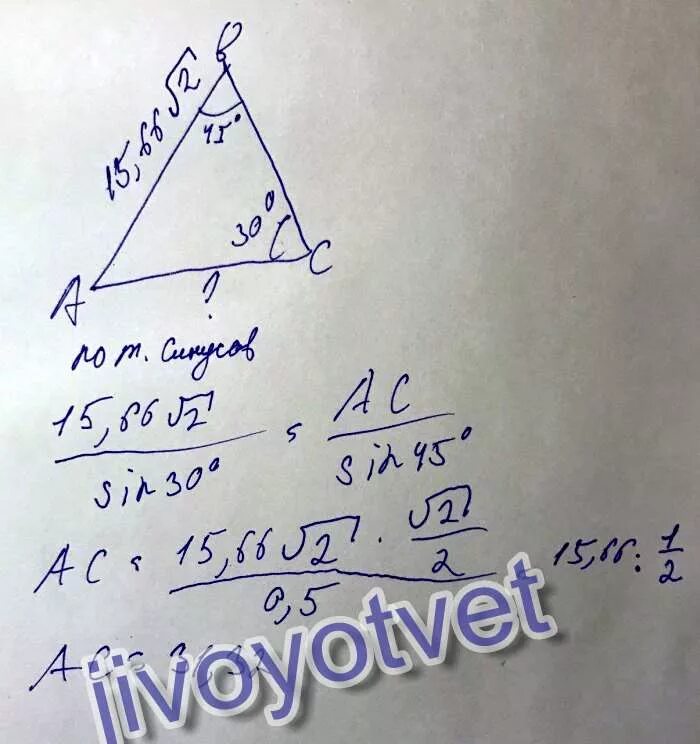 B
15,66√2
45°
30°
A
C
?
по т. синусов
15,66√2 / sin30° = AC / sin45°
AC = 15,66√2 · √2/2 / 0,5 = 15,66 : 1/2
AC =
jivoyotvet